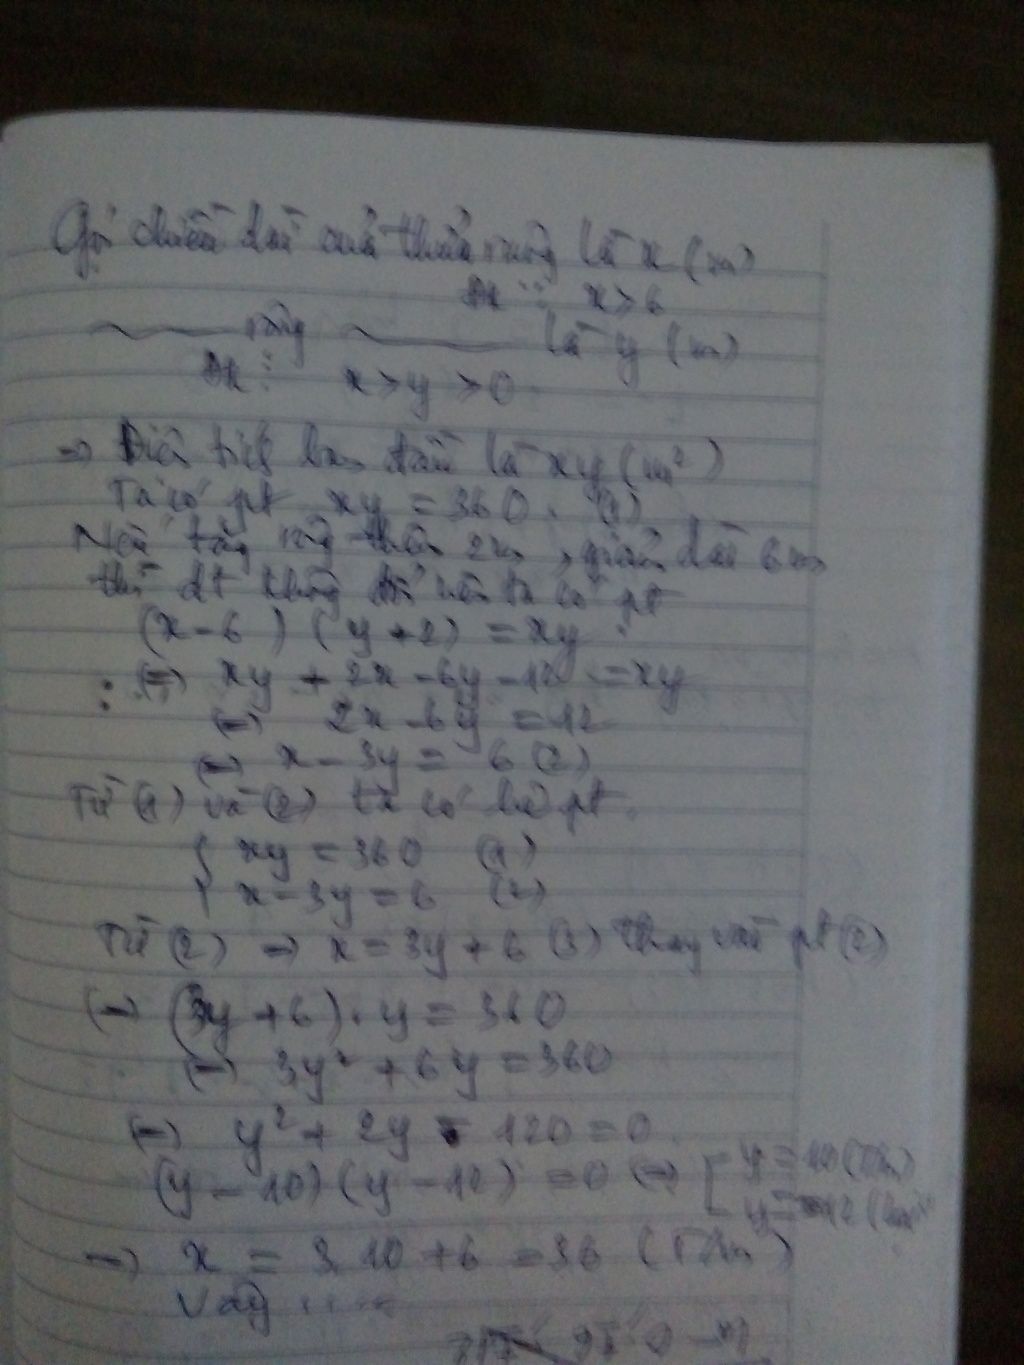 Gọi chiều dài của thửa ruộng là x (m)
Đk : x > 6
rộng là y (m)
Đk : x > y > 0
=> Diện tích ban đầu là xy (m²)
Ta có pt xy = 360 . (1)
Nếu tăng rộng thêm 2m , giảm dài 6m
thì dt không đổi nên ta có pt
(x - 6) (y + 2) = xy .
: <=> xy + 2x - 6y - 12 = xy
<=> 2x - 6y = 12
<=> x - 3y = 6 (2)
Từ (1) và (2) ta có hệ pt .
{ xy = 360 (1)
x - 3y = 6 (2)
Từ (2) => x = 3y + 6 (3) thay vào pt (2)
<=> (3y + 6) . y = 360
<=> 3y² + 6y = 360
<=> y² + 2y - 120 = 0
(y - 10) (y - 12) = 0 <=> [ y = 10 (TM)
y = -12 (loại)
=> x = 3.10 + 6 = 36 (TM)
Vậy ....